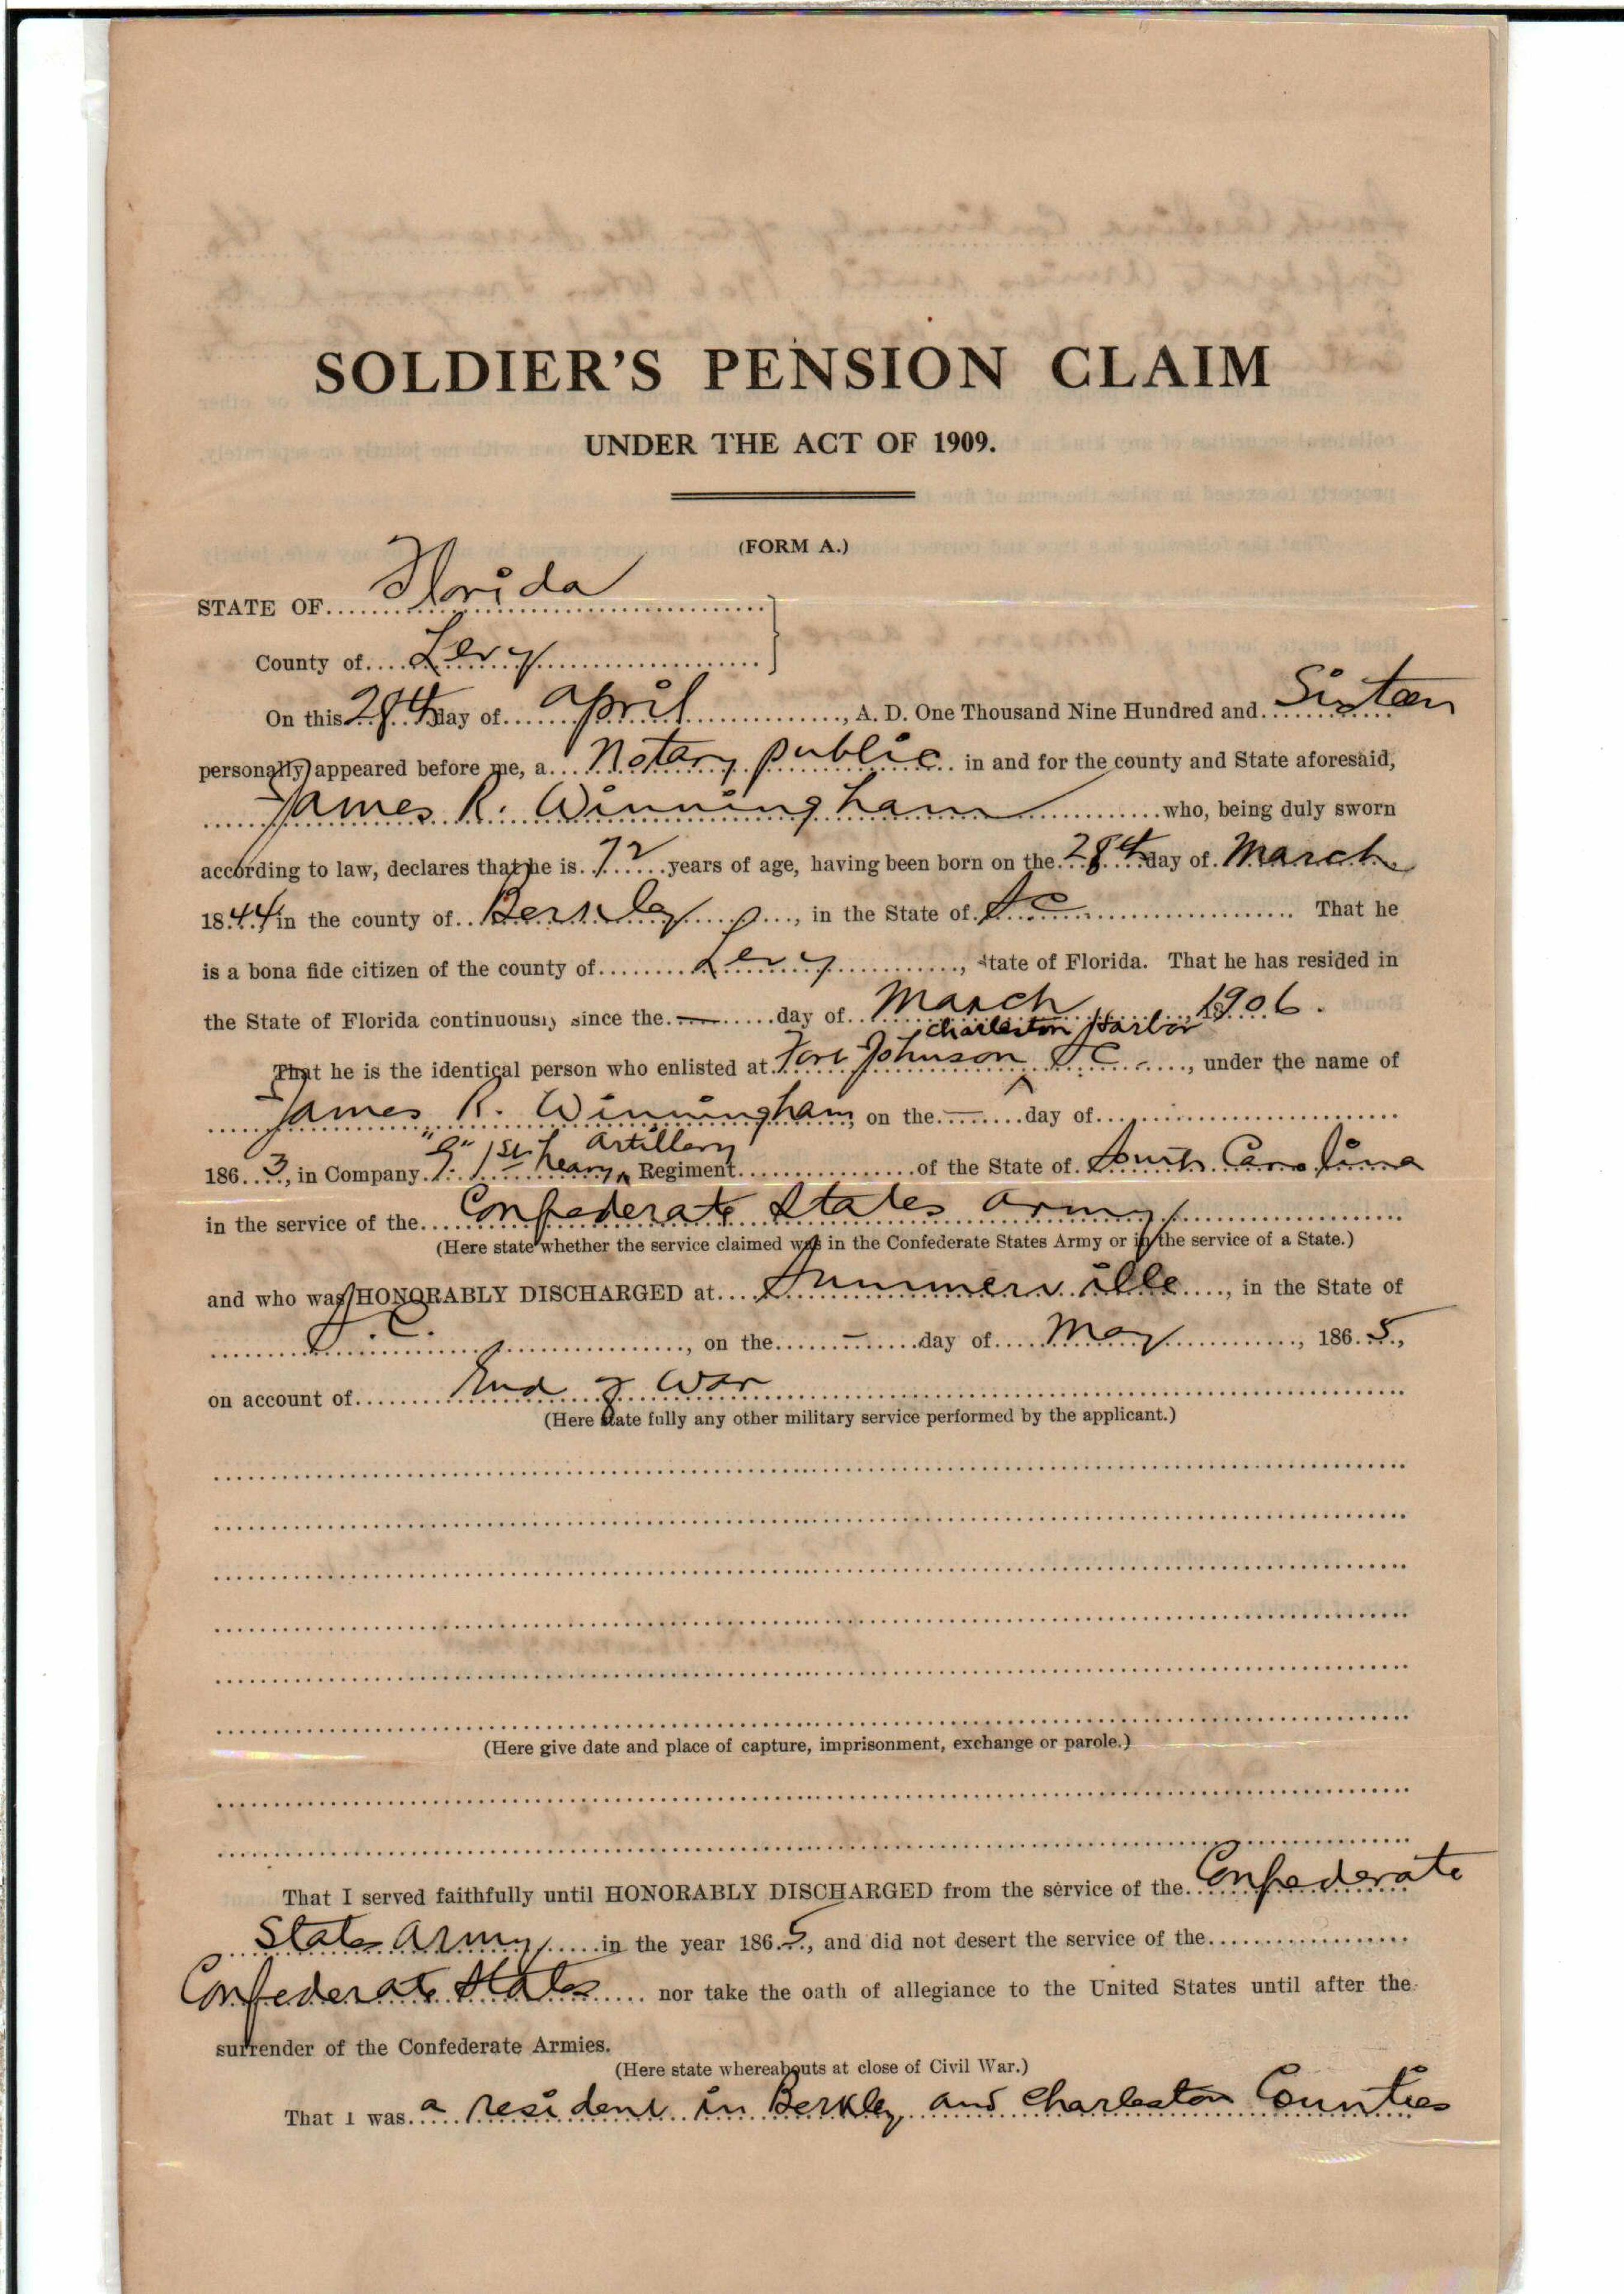 SOLDIER'S PENSION CLAIM
UNDER THE ACT OF 1909.
(FORM A.)
STATE OF Florida
County of Levy
On this 28th day of April, A. D. One Thousand Nine Hundred and Sixteen
personally appeared before me, a Notary public in and for the county and State aforesaid,
James R. Winningham who, being duly sworn
according to law, declares that he is 72 years of age, having been born on the 28th day of March
1844 in the county of Berkley, in the State of S C That he
is a bona fide citizen of the county of Levy, State of Florida. That he has resided in
the State of Florida continuously since the — day of March, 1906.
Charleston Harbor
That he is the identical person who enlisted at Fort Johnson ^ S C, under the name of
James R. Winningham, on the — day of
186 3, in Company 1st heavy ^ Artillery Regiment of the State of South Carolina
in the service of the Confederate States Army
(Here state whether the service claimed was in the Confederate States Army or in the service of a State.)
and who was HONORABLY DISCHARGED at Summerville, in the State of
S. C., on the — day of May, 186 5,
on account of End of War
(Here state fully any other military service performed by the applicant.)
(Here give date and place of capture, imprisonment, exchange or parole.)
That I served faithfully until HONORABLY DISCHARGED from the service of the Confederate
States Army in the year 186 5, and did not desert the service of the
Confederate States nor take the oath of allegiance to the United States until after the
surrender of the Confederate Armies.
(Here state whereabouts at close of Civil War.)
That I was a resident in Berkley and Charleston Counties